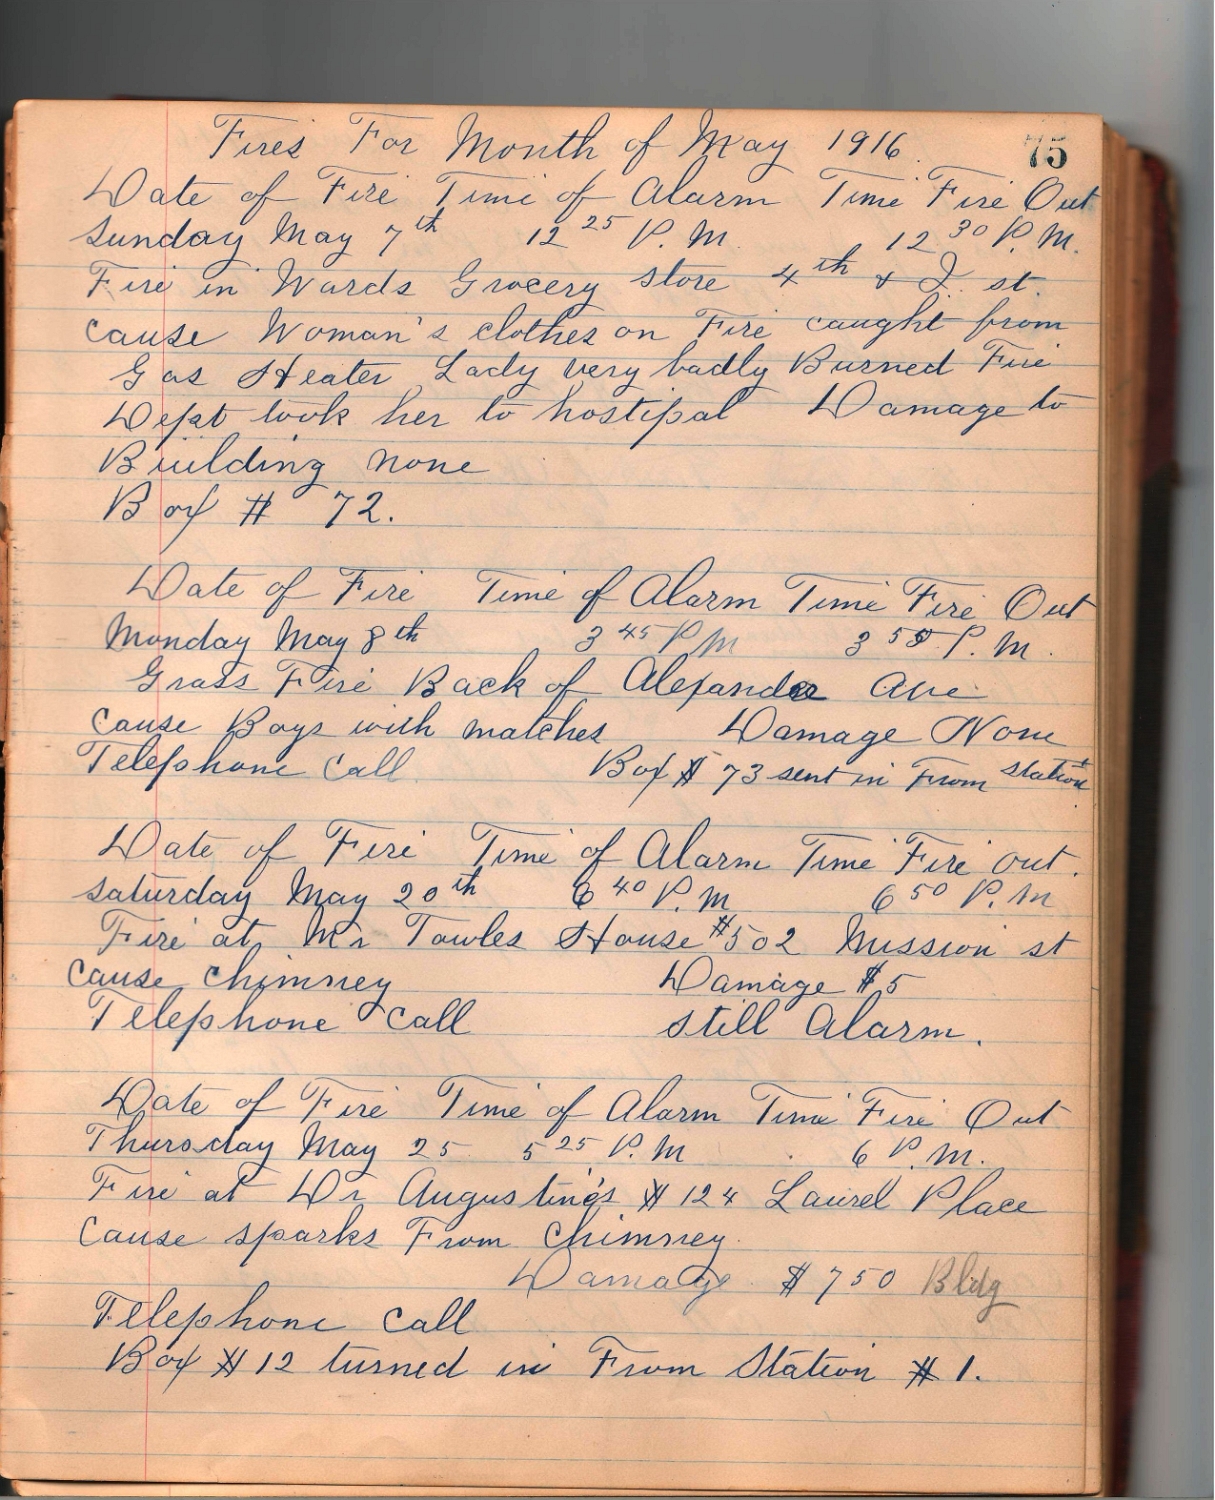 Fires For Month of May 1916. 75
Date of Fire Time of Alarm Time Fire Out
Sunday May 7th 12 25 P.M. 12 30 P.M.
Fire in Wards Grocery store 4th & I. st.
cause Woman's clothes on Fire caught from
Gas Heater Lady very badly Burned Fire
Dept took her to hostipal Damage to
Building none
Box # 72.
Date of Fire Time of Alarm Time Fire Out
Monday May 8th 3 45 P.M 3 55 P.M.
Grass Fire Back of Alexander Ave
cause Boys with matches Damage None
Telephone Call Box # 73 sent in From Station
Date of Fire Time of Alarm Time Fire out.
Saturday May 20th 6 40 P.M 6 50 P.M
Fire at Mr Towles House #502 Mission st
cause chimney Damage $5
Telephone Call Still Alarm.
Date of Fire Time of Alarm Time Fire Out
Thursday May 25 5 25 P.M 6 P.M.
Fire at Dr Augustine's # 124 Laurel Place
Cause sparks From Chimney.
Damage $750 Bldg
Telephone Call
Box # 12 turned in From Station # 1.